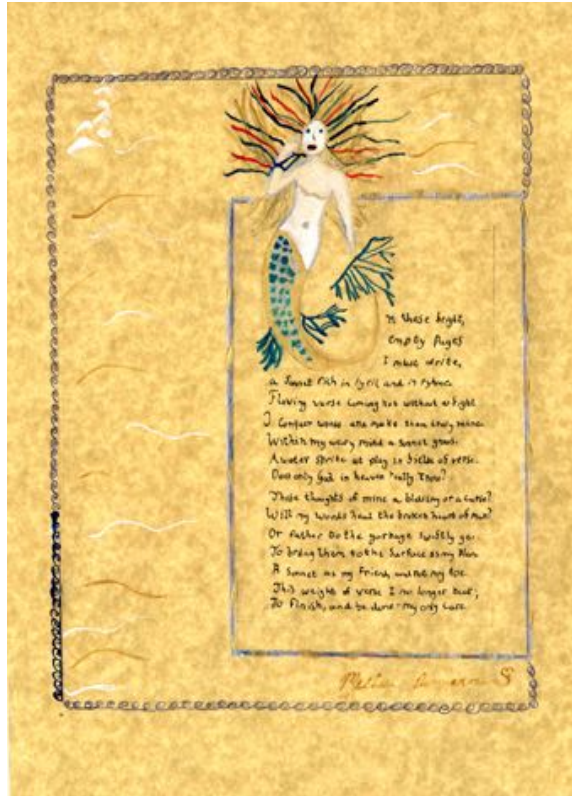 n these bright,
empty Pages
I must write,
a Sonnet rich in lyric and in
Flowing verse coming not without a fight
I Conjure words and make them truly mine.
Within my weary mind a sonnet grows.
A water sprite at play in fields of verse.
Does only God in heaven know?
These thoughts of mine a blessing or a curse?
Will my words heal the broken heart of Man?
Or rather to the garbage swiftly go.
To bring them to the Surface is my Plan
A Sonnet as my Friend, and not my foe.
This weight of verse I no longer bear;
To Finish, and be done my only care